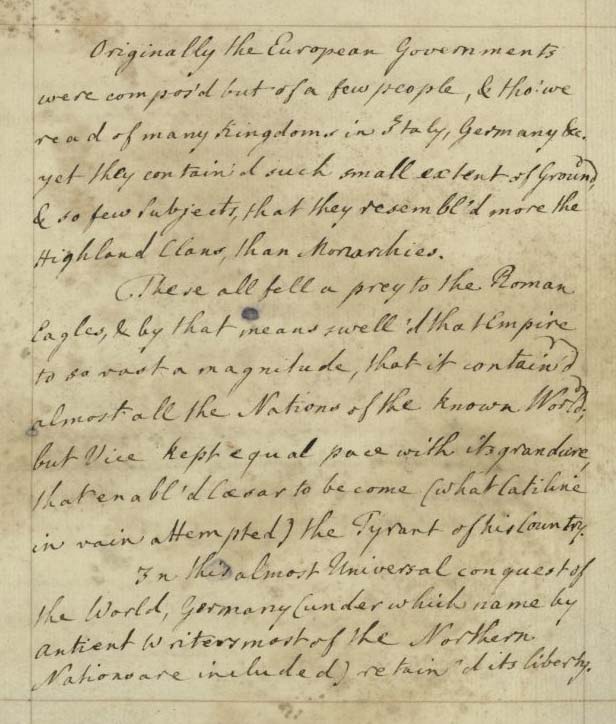 Originally the European Governments
were compos'd but of a few people, & tho' we
read of many Kingdoms in Italy, Germany &c.
yet they contain'd such small extent of Ground,
& so few Subjects, that they resembl'd more the
Highland Clans, than Monarchies.
These all fell a prey to the Roman
Eagles, & by that means swell'd that Empire
to so vast a magnitude, that it contain'd
almost all the Nations of the known World,
but Vice kept equal pace with its grandure,
that enabl'd Cæsar to become (what Catiline
in vain attempted) the Tyrant of his Country.
In this almost Universal conquest of
the World, Germany (under which name by
antient Writers most of the Northern
Nations are included) retain'd its liberty.